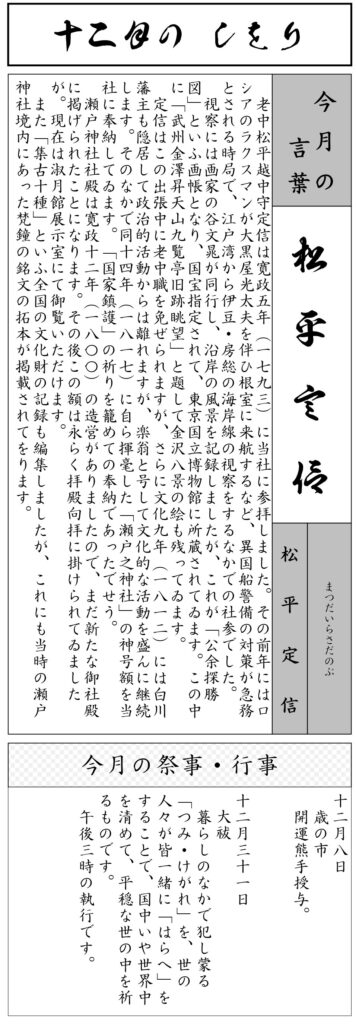 十二月の しをり
今月の
言葉
松平定信
まつだいらさだのぶ
松平定信
老中松平越中守定信は寛政五年（一七九三）に当社に参拝しました。その前年にはロ
シアのラクスマンが大黒屋光太夫を伴ひ根室に来航するなど、異国船警備の対策が急務
とされる時局で、江戸湾から伊豆・房総の海岸線の視察をするなかでの社参でした。
視察には画家の谷文晁が同行し、沿岸の風景を記録しましたが、これが「公余探勝
図」といふ画帳となり、国宝指定されて、東京国立博物館に所蔵されてゐます。この中
に「武州金澤昇天山九覧亭旧跡眺望」と題して金沢八景の絵も残ってゐます。
定信はこの出張中に老中職を免ぜられますが、さらに文化九年（一八一二）には白川
藩主も隠居して政治的活動からは離れますが、楽翁と号して文化的な活動を盛んに継続
します。そのなかで同十四年（一八一七）に自ら揮毫した「瀬戸之神社」の神号額を当
社に奉納してゐます。「国家鎮護」の祈りを籠めての奉納であったでせう。
瀬戸神社社殿は寛政十二年（一八〇〇）の造営がありましたので、まだ新たな御社殿
に掲げられたことになります。その後この額は永らく拝殿向拝に掛けられてゐました
が。現在は淑月館展示室にて御覧いただけます。
また「集古十種」といふ全国の文化財の記録も編集しましたが、これにも当時の瀬戸
神社境内にあった梵鐘の銘文の拓本が掲載されてをります。
今月の祭事・行事
十二月八日
歳の市
開運熊手授与。
十二月三十一日
大祓
暮らしのなかで犯し蒙る
「つみ・けがれ」を、世の
人々が皆一緒に「はらへ」を
することで、国中いや世界中
を清めて、平穏な世の中を祈
るものです。
午後三時の執行です。